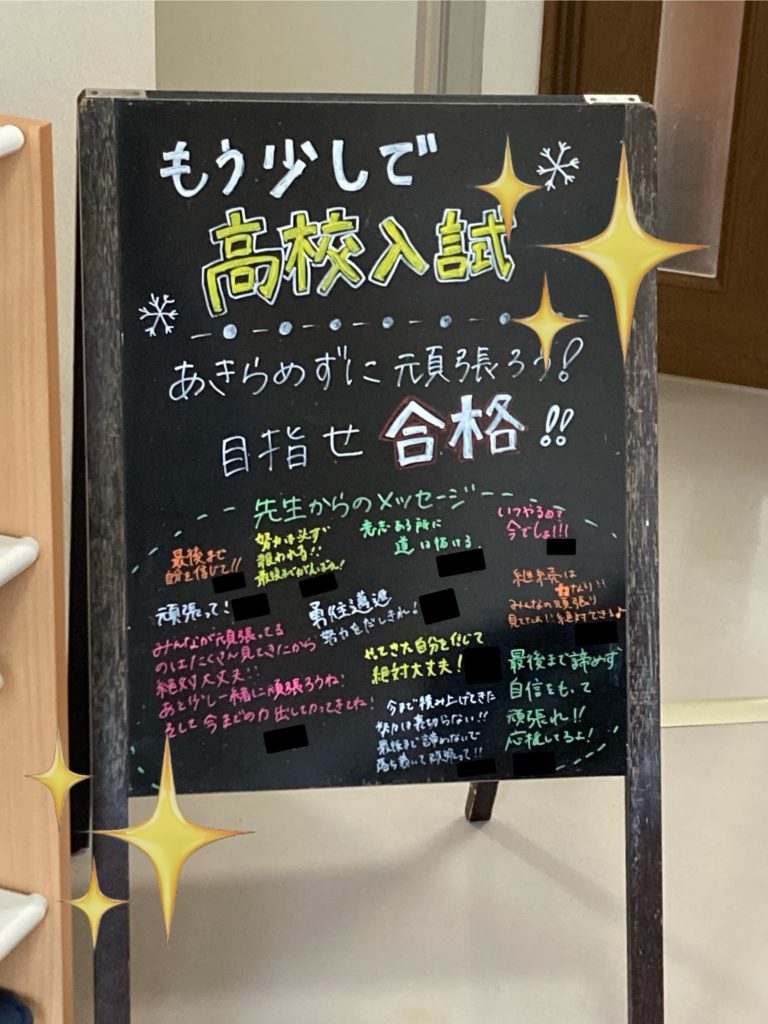 もう少しで
高校入試
あきらめずに頑張ろう!
目指せ 合格!!
先生からのメッセージ
最後まで
自分を信じて!!
努力は必ず
報われる!!
最後までがんばれ!
意志ある所に
道は拓ける
いつやるの?
今でしょ!!!
継続は
力なり!!
みんなの頑張り
見てたよ!!絶対できる♪
頑張って!
勇往邁進
努力をだしきれ!
みんなが頑張ってる
のはたくさん見てきたから
絶対大丈夫!!
あと少し一緒に頑張ろうね!
そして今までの力出しきってきてね!
やってきた自分を信じて
絶対大丈夫!
今まで積み上げてきた
努力は裏切らない!!
最後まで諦めないで
落ち着いて頑張って!!
最後まで諦めず
自信をもって
頑張れ!!
応援してるよ!